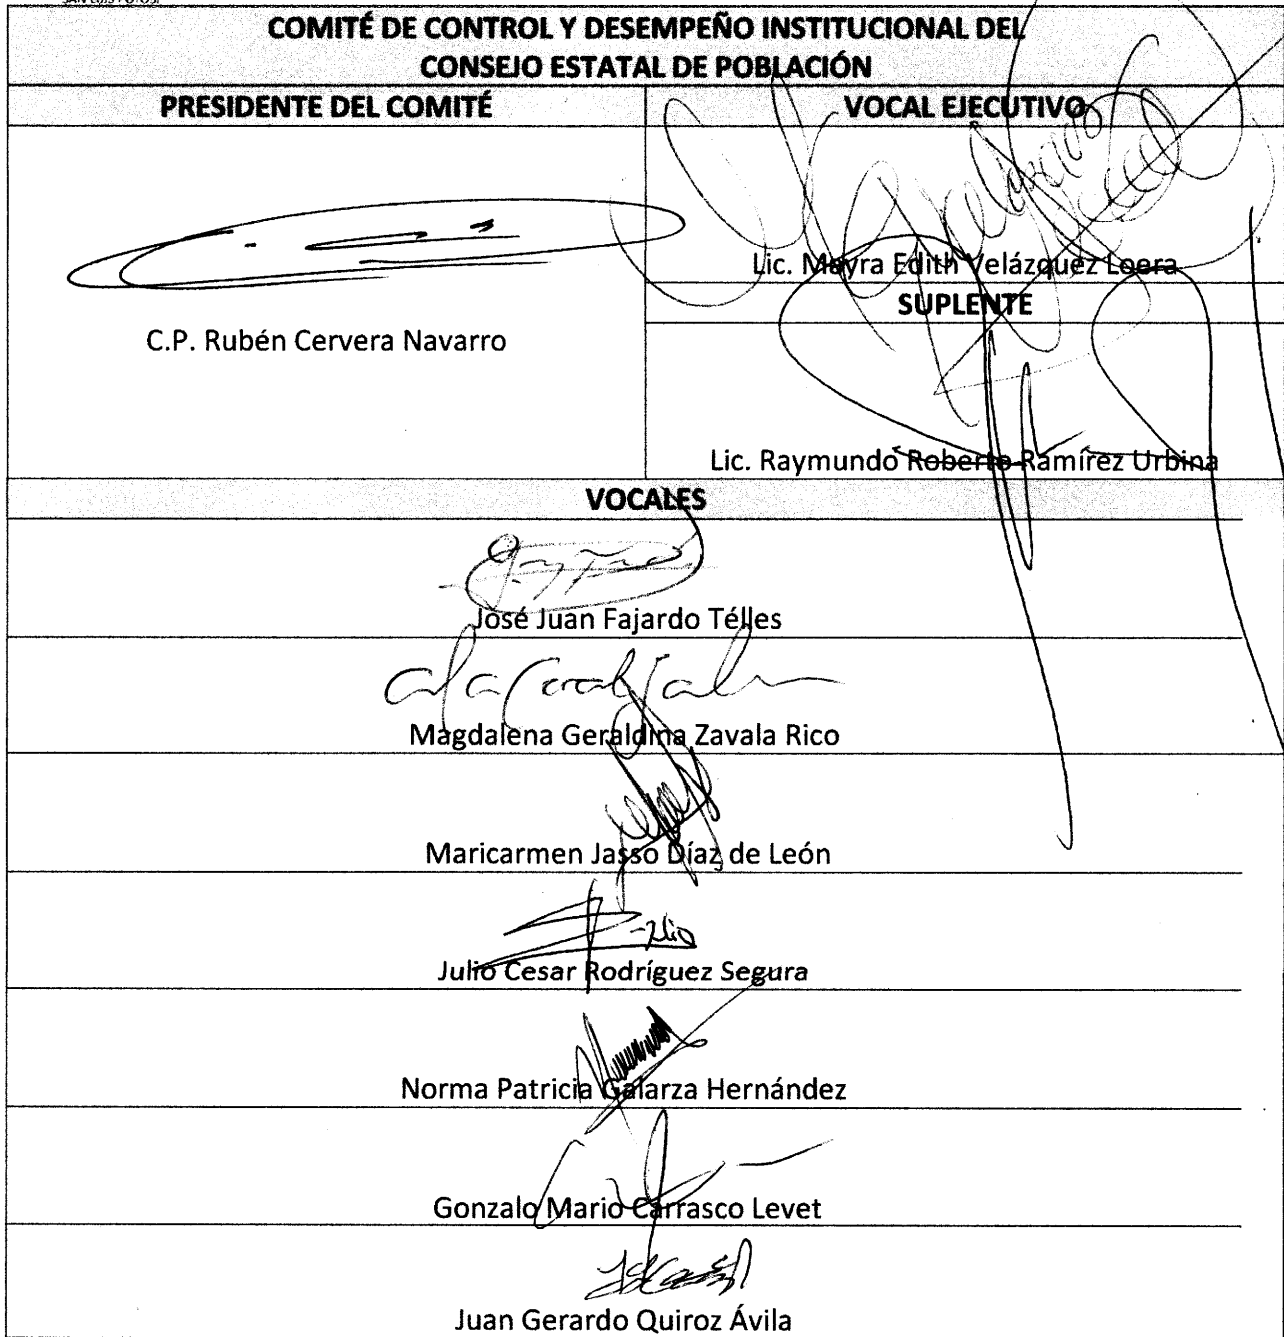 SAN LUIS POTOSÍ
COMITÉ DE CONTROL Y DESEMPEÑO INSTITUCIONAL DEL
CONSEJO ESTATAL DE POBLACIÓN
PRESIDENTE DEL COMITÉ
VOCAL EJECUTIVO
Lic. Mayra Edith Velázquez Loera
SUPLENTE
C.P. Rubén Cervera Navarro
Lic. Raymundo Roberto Ramírez Urbina
VOCALES
José Juan Fajardo Télles
Magdalena Geraldina Zavala Rico
Maricarmen Jasso Díaz de León
Julio Cesar Rodríguez Segura
Norma Patricia Galarza Hernández
Gonzalo Mario Carrasco Levet
Juan Gerardo Quiroz Ávila